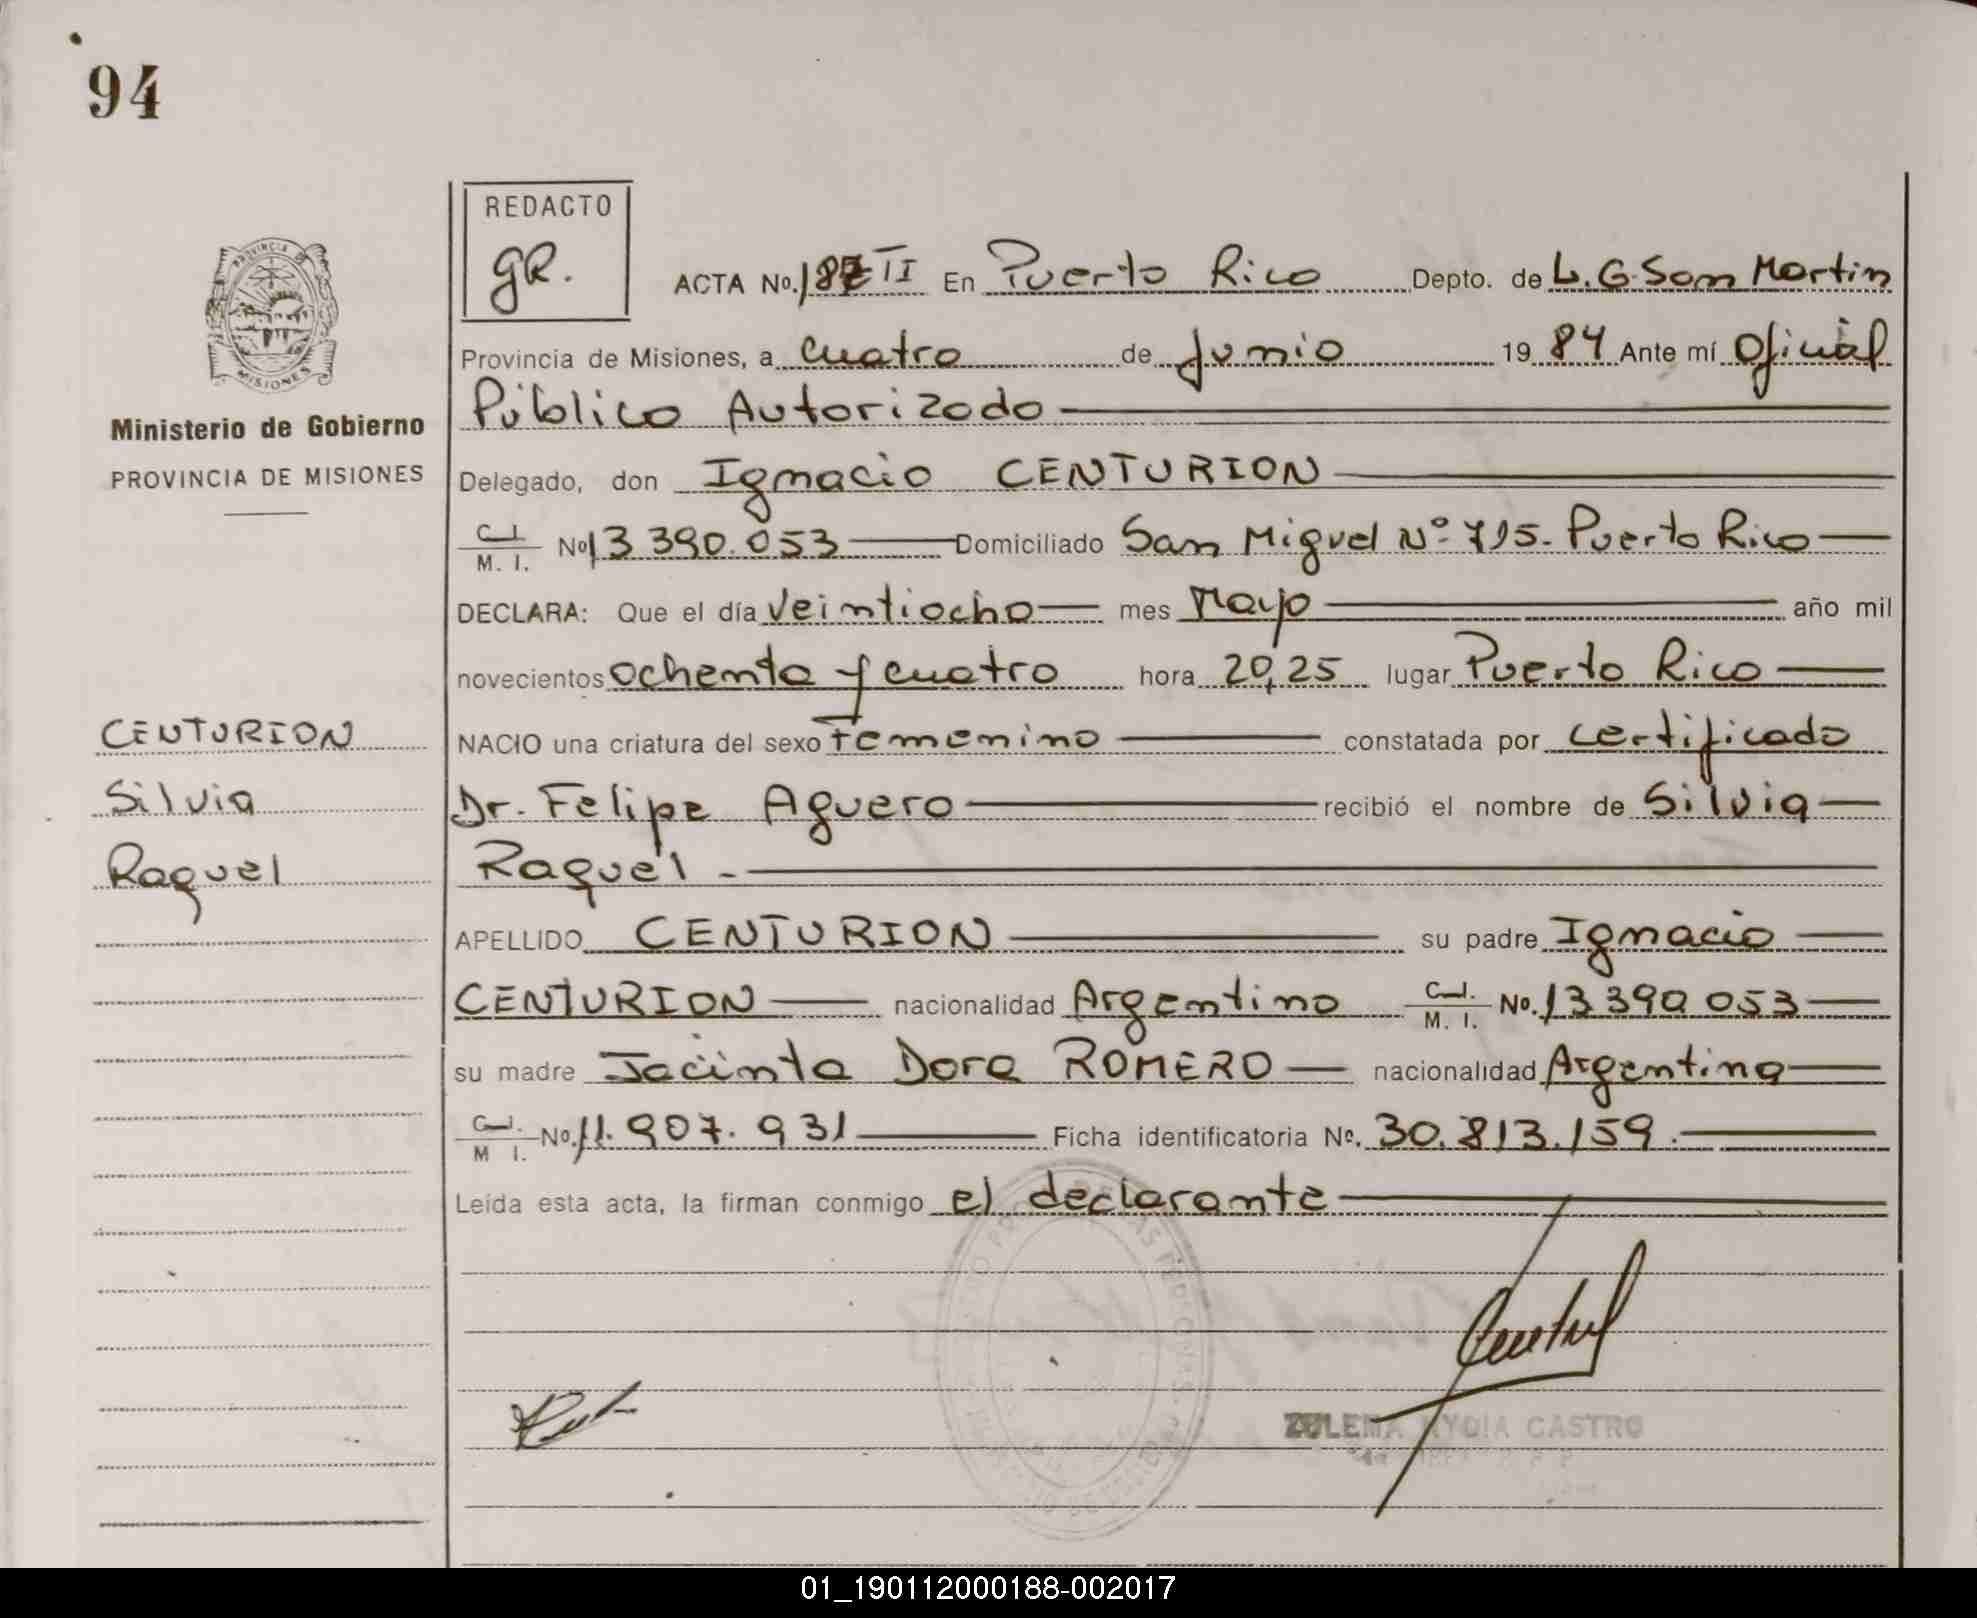 94
REDACTO
gR.
ACTA No. 187 II En Puerto Rico Depto. de L. G. San Martin
Provincia de Misiones, a cuatro de junio 19 84 Ante mí Oficial
Público Autorizado
Delegado, don Ignacio CENTURION
C.I. M. I. No 13 390.053 Domiciliado San Miguel Nº 715. Puerto Rico
DECLARA: Que el día veintiocho mes Mayo año mil
novecientos ochenta y cuatro hora 20,25 lugar Puerto Rico
NACIO una criatura del sexo Femenino constatada por certificado
Dr. Felipe Aguero recibió el nombre de Silvia
Raquel
APELLIDO CENTURION su padre Ignacio
CENTURION nacionalidad Argentino C.I. M. I. No. 13 390 053
su madre Jacinta Dora ROMERO nacionalidad Argentina
C.I. M I. No. 11.907.931 Ficha identificatoria Nº. 30.813.159.
Leída esta acta, la firman conmigo el declarante
PROVINCIA DE
MISIONES
Ministerio de Gobierno
PROVINCIA DE MISIONES
CENTURION
Silvia
Raquel
ZULEMA NYDIA CASTRO
01_190112000188-002017